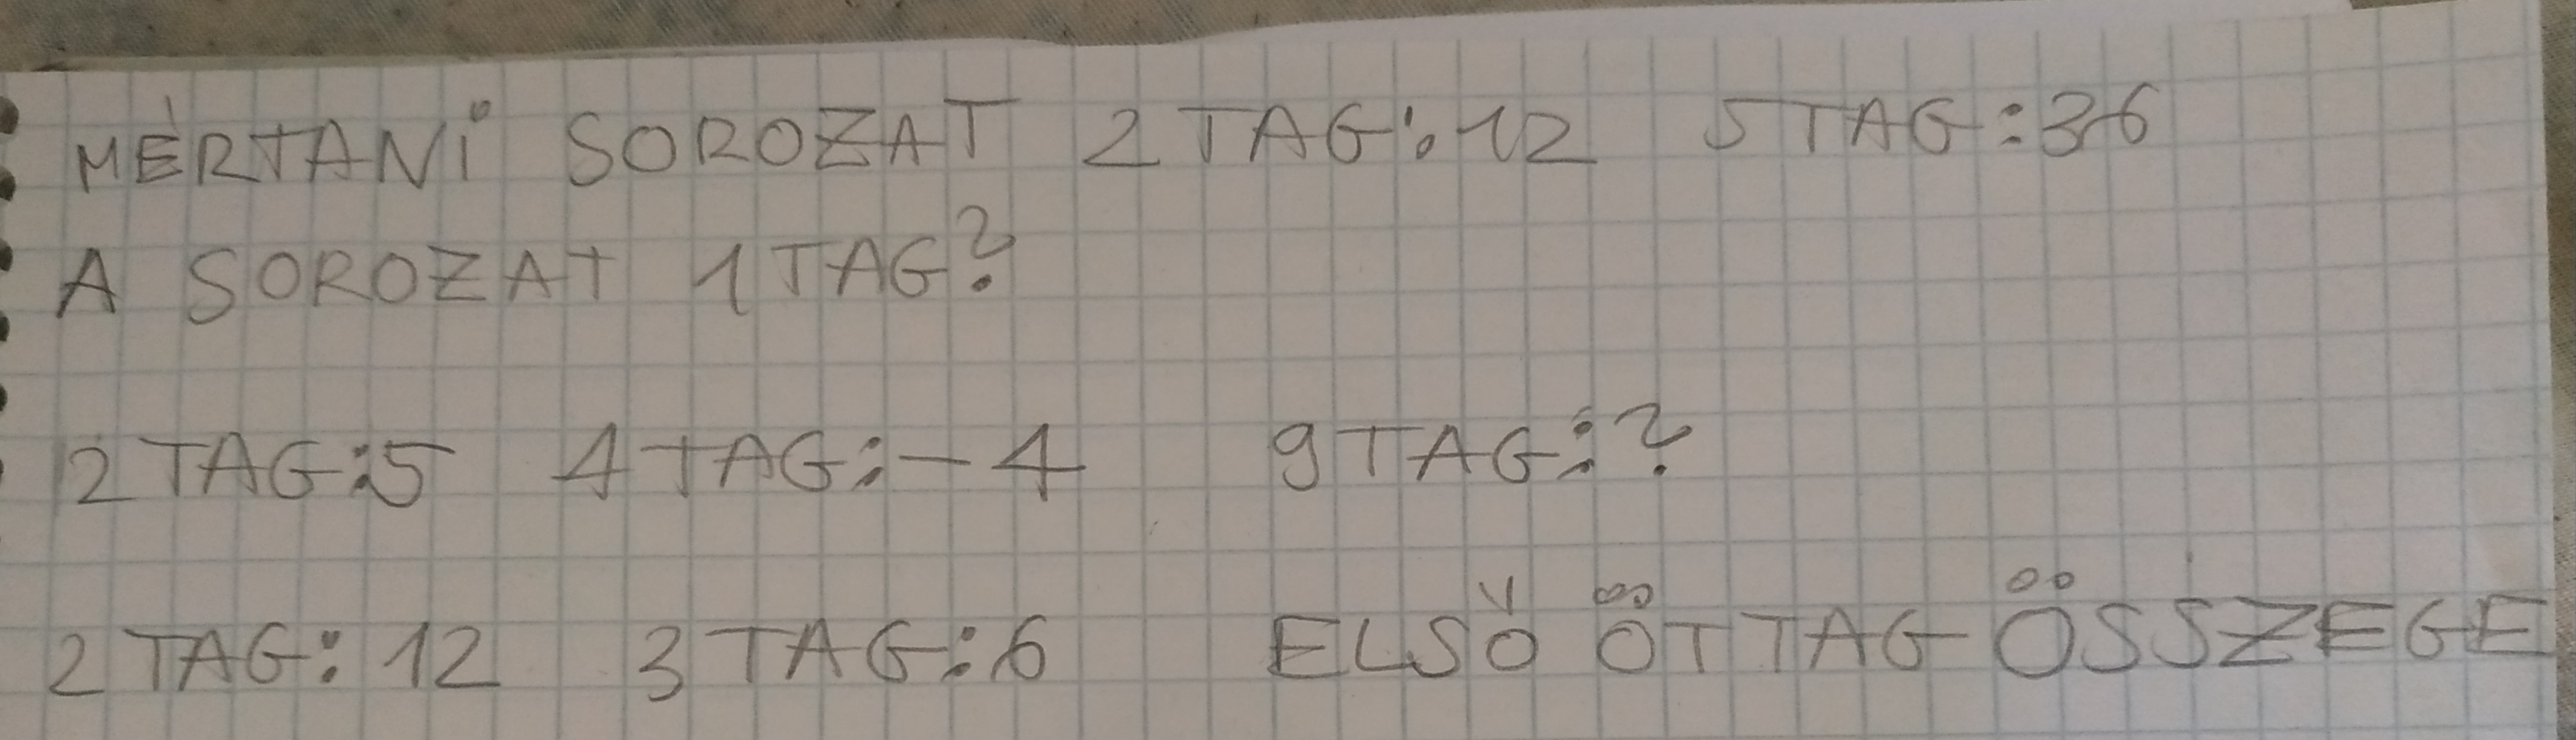 MÉRTANI SOROZAT 2 TAG: 12 5 TAG: 36
A SOROZAT 1 TAG?
2 TAG: 5 4 TAG: -4 9 TAG: ?
2 TAG: 12 3 TAG: 6 ELSŐ ÖT TAG ÖSSZEGE